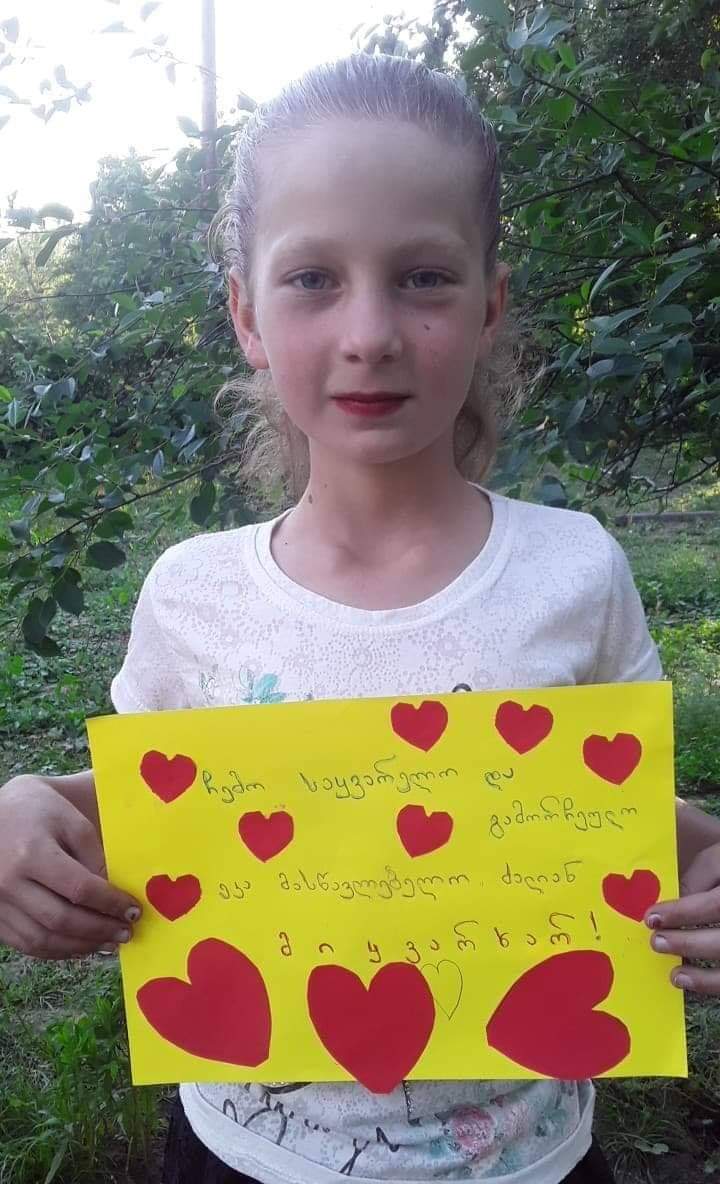 ჩემო საყვარელო და
გამორჩეულო
ეკა მასწავლებელო. ძალიან
მიყვარხარ!